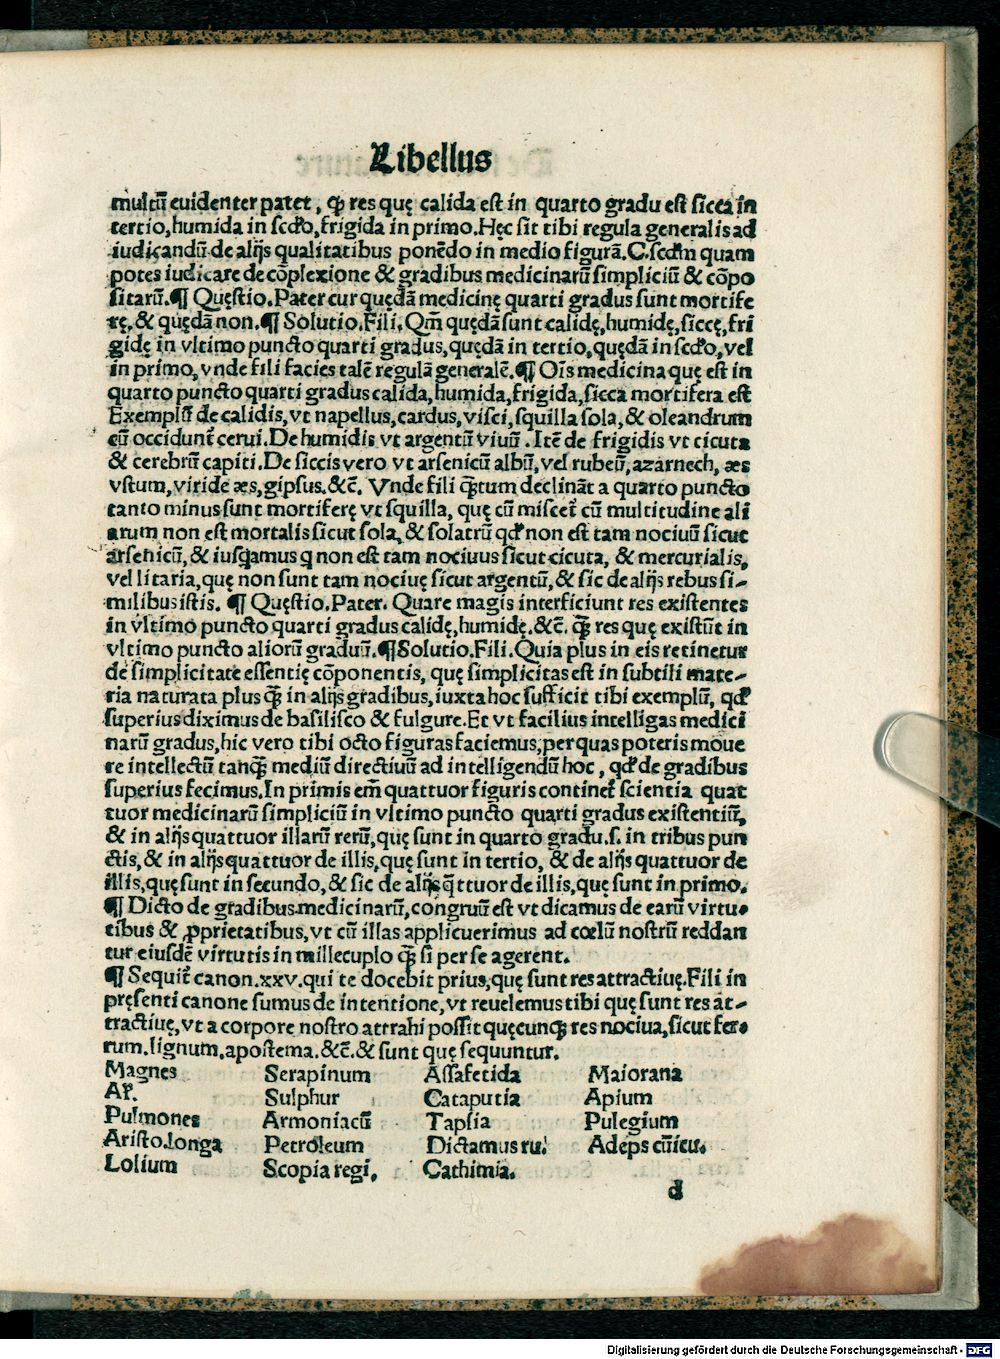 Libellus
multū euidenter patet, ꝙ res quę calida est in quarto gradu est sicca in
tertio, humida in scďo, frigida in primo. Hęc sit tibi regula generalis ad
iudicandū de alijs qualitatibus ponēdo in medio figurā. C. scďm quam
potes iudicare de cōplexione & gradibus medicinarū simpliciū & cōpo
sitarū. ¶ Quęstio. Pater cur quędā medicinę quarti gradus sunt mortife
rę, & quędā non. ¶ Solutio. Fili. Qm̄ quędā sunt calidę, humidę, siccę, fri
gidę in vltimo puncto quarti gradus, quędā in tertio, quędā in scďo, vel
in primo, vnde fili facies talē regulā generalē. ¶ Oīs medicina quę est in
quarto puncto quarti gradus calida, humida, frigida, sicca mortifera est
Exemplū de calidis, vt napellus, cardus, visci, squilla sola, & oleandrum
cū occidunt̄ cerui. De humidis vt argentū viuū. Itē de frigidis vt cicuta
& cerebrū capiti. De siccis vero vt arsenicū albū, vel rubeū, azarnech, æs
vstum, viride æs, gipsus. &c̄. Vnde fili qꝫtum declināt a quarto puncto
tanto minus sunt mortiferę vt squilla, quę cū miscet̄ cū multitudine ali
arum non est mortalis sicut sola, & solatrū qď non est tam nociuū sicut
arsenicū, & iusqamus q non est tam nociuus sicut cicuta, & mercurialis,
vel litaria, quę non sunt tam nociuę sicut argentū, & sic de alijs rebus si-
milibus istis. ¶ Quęstio. Pater. Quare magis interficiunt res existentes
in vltimo puncto quarti gradus calidę, humidę. &c̄. qꝫ res quę existūt in
vltimo puncto aliorū graduū. ¶ Solutio. Fili. Quia plus in eis retinetur
de simplicitate essentię cōponentis, quę simplicitas est in subtili mate-
ria naturata plus qꝫ in alijs gradibus, iuxta hoc sufficit tibi exemplū, qď
superius diximus de basilisco & fulgure. Et vt facilius intelligas medici
narū gradus, hic vero tibi octo figuras faciemus, per quas poteris moue
re intellectū tanqꝫ mediū directiuū ad intelligendū hoc, qď de gradibus
superius fecimus. In primis em̄ quattuor figuris continet̄ scientia quat
tuor medicinarū simpliciū in vltimo puncto quarti gradus existentiū,
& in alijs quattuor illarū rerū, quę sunt in quarto gradu. s. in tribus pun
ctis, & in alijs quattuor de illis, quę sunt in tertio, & de alijs quattuor de
illis, quę sunt in secundo, & sic de alijs q̄ttuor de illis, quę sunt in primo.
¶ Dicto de gradibus medicinarū, congruū est vt dicamus de earū virtu-
tibus & ꝓprietatibus, vt cū illas applicuerimus ad cœlū nostrū reddan
tur eiusdē virtutis in millecuplo qꝫ si per se agerent.
¶ Sequit̄ canon. xxv. qui te docebit prius, quę sunt res attractiuę. Fili in
pręsenti canone sumus de intentione, vt reuelemus tibi quę sunt res at-
tractiuę, vt a corpore nostro attrahi possit quęcunqꝫ res nociua, sicut fer-
rum, lignum, apostema. &c̄. & sunt quę sequuntur.
Magnes Serapinum Assafetida Maiorana
Aꝛ. Sulphur Cataputia Apium
Pulmones Armoniacū Tapsia Pulegium
Aristo. longa Petroleum Dictamus ru. Adeps cūicu.
Lolium Scopia regi. Cathimia.
d
Digitalisierung gefördert durch die Deutsche Forschungsgemeinschaft - DFG